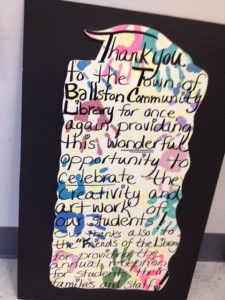 Thank you
to the Town of
Ballston Community
Library for once
again providing
this wonderful
opportunity to
celebrate the
creativity and
art work of
our students!
Our thanks also to
the "Friends of the Library
for providing the
annual reception
for students, their
families and staff